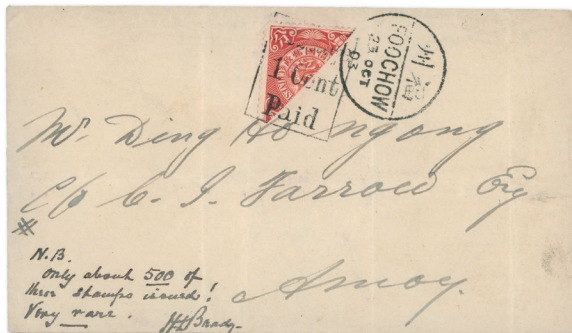 1 Cent
Paid
州福
FOOCHOW
23 OCT
03
Mr. Ding Ho ngong
C/o C. I. Farrow Esq
Amoy.
N.B.
Only about 500 of
these stamps issued!
Very rare.
HLBrady-